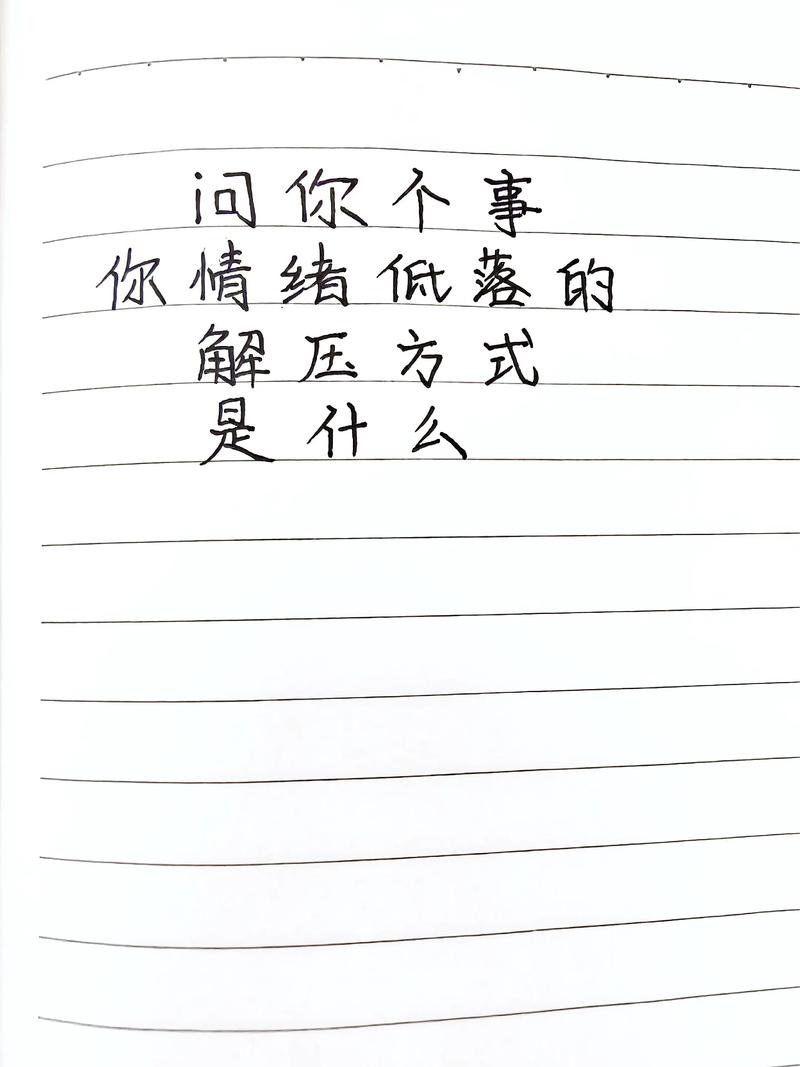 问你个事
你情绪低落的
解压方式
是什么